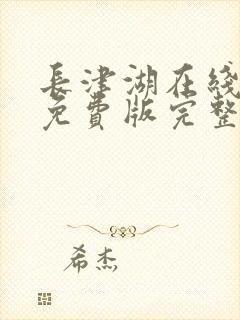 長津湖在綫
免費版完整
希杰